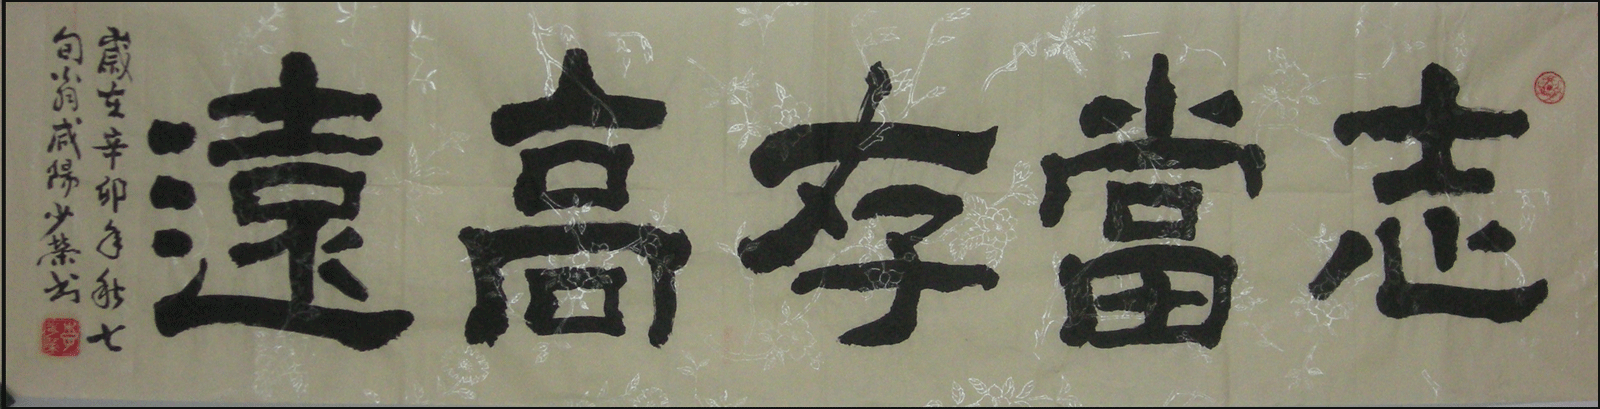 志當存高遠
歲在辛卯年秋七
旬翁咸陽少榮书